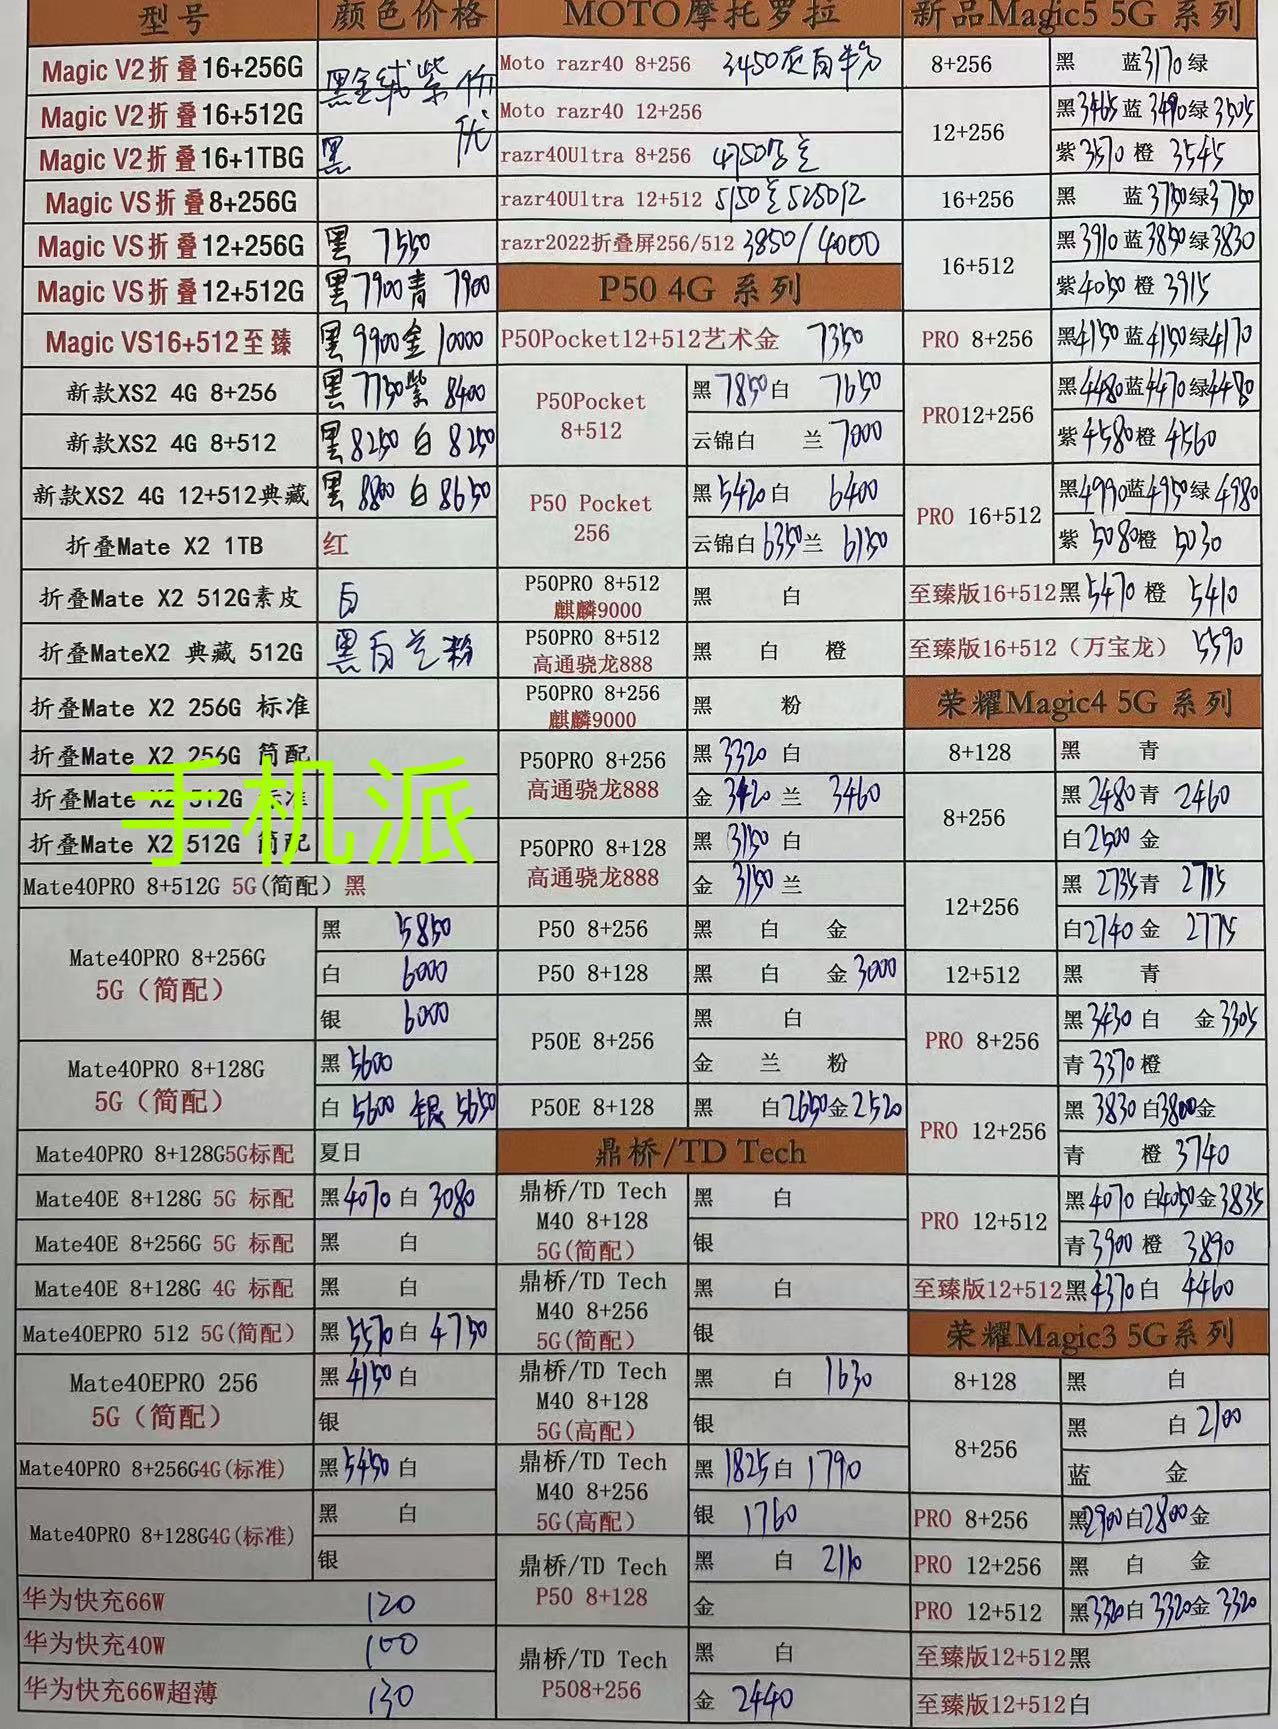 型号 颜色价格
Magic V2折叠16+256G 黑金绒紫 价优
Magic V2折叠16+512G
Magic V2折叠16+1TBG 黑
Magic VS折叠8+256G
Magic VS折叠12+256G 黑 7550
Magic VS折叠12+512G 黑7900青 7900
Magic VS16+512至臻 黑9900金10000
新款XS2 4G 8+256 黑7750紫 8400
新款XS2 4G 8+512 黑8250 白8250
新款XS2 4G 12+512典藏 黑 8800 白8650
折叠Mate X2 1TB 红
折叠Mate X2 512G素皮 白
折叠MateX2 典藏 512G 黑白兰粉
折叠Mate X2 256G 标准
折叠Mate X2 256G 简配
折叠Mate X2 512G 标准
折叠Mate X2 512G 简配
手机派
Mate40PRO 8+512G 5G(简配) 黑
Mate40PRO 8+256G
5G(简配)
黑 5850
白 6000
银 6000
Mate40PRO 8+128G
5G(简配)
黑5600
白5600 银5650
Mate40PRO 8+128G5G标配 夏日
Mate40E 8+128G 5G 标配 黑4070白 3080
Mate40E 8+256G 5G 标配 黑 白
Mate40E 8+128G 4G 标配 黑 白
Mate40EPRO 512 5G(简配) 黑5570白4750
Mate40EPRO 256
5G(简配)
黑4150白
银
Mate40PRO 8+256G4G(标准) 黑5450白
Mate40PRO 8+128G4G(标准)
黑 白
银
华为快充66W 120
华为快充40W 100
华为快充66W超薄 130
MOTO摩托罗拉
Moto razr40 8+256 3450灰白
Moto razr40 12+256
razr40Ultra 8+256 4750
razr40Ultra 12+512 5150 5250红
razr2022折叠屏256/512 3850/4000
P50 4G 系列
P50Pocket12+512艺术金 7350
P50Pocket
8+512
黑7850白 7650
云锦白 兰7000
P50 Pocket
256
黑5420白 6400
云锦白6350兰 6150
P50PRO 8+512
麒麟9000
黑 白
P50PRO 8+512
高通骁龙888
黑 白 橙
P50PRO 8+256
麒麟9000
黑 粉
P50PRO 8+256
高通骁龙888
黑3320白
金3420兰 3460
P50PRO 8+128
高通骁龙888
黑3150白
金3150兰
P50 8+256 黑 白 金
P50 8+128 黑 白 金3000
P50E 8+256
黑 白
金 兰 粉
P50E 8+128 黑 白2650金2520
鼎桥/TD Tech
鼎桥/TD Tech
M40 8+128
5G(简配)
黑 白
银
鼎桥/TD Tech
M40 8+256
5G(简配)
黑 白
银
鼎桥/TD Tech
M40 8+128
5G(高配)
黑 白 1630
银
鼎桥/TD Tech
M40 8+256
5G(高配)
黑1825白1790
银 1760
鼎桥/TD Tech
P50 8+128
黑 白 2110
金
鼎桥/TD Tech
P508+256
黑 白
金 2440
新品Magic5 5G 系列
8+256 黑 蓝3170绿
12+256
黑3465蓝3490绿3505
紫3570橙 3545
16+256 黑 蓝3750绿3750
16+512
黑3910蓝3850绿3830
紫4050橙 3915
PRO 8+256 黑4150蓝4150绿4170
PRO12+256
黑4480蓝4470绿4480
紫4580橙 4560
PRO 16+512
黑4990蓝4950绿4980
紫 5080橙 5030
至臻版16+512黑5470橙 5410
至臻版16+512(万宝龙) 5590
荣耀Magic4 5G 系列
8+128 黑 青
8+256
黑2480青 2460
白2500金
12+256
黑 2735青 2715
白2740金 2775
12+512 黑 青
PRO 8+256
黑3430白 金3305
青3370橙
PRO 12+256
黑 3830白3800金
青 橙 3740
PRO 12+512
黑4070白4050金3835
青3900橙 3890
至臻版12+512黑4370白 4460
荣耀Magic3 5G系列
8+128 黑 白
8+256
黑 白2100
蓝 金
PRO 8+256 黑2900白2800金
PRO 12+256 黑 白 金
PRO 12+512 黑3320白3320金3320
至臻版12+512黑
至臻版12+512白